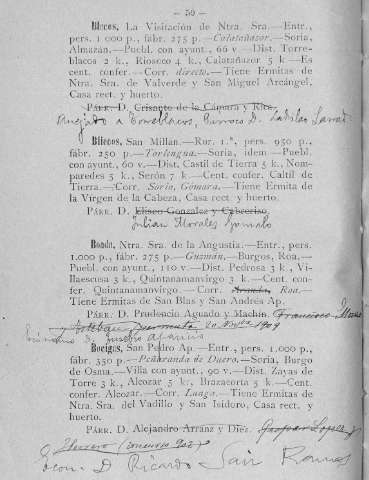 — 50 —
Blocos, La Visitación de Ntra. Sra.—Entr.,
pers. 1.000 p., fábr. 275 p.—Calatañazor.—Soria,
Almazán.—Puebl. con ayunt., 66 v.—Dist. Torre-
blacos 2 k., Rioseco 4 k., Calatañazor 5 k.—Es
cent. confer.—Corr. directo.—Tiene Ermitas de
Ntra. Sra. de Valverde y San Miguel Arcángel,
Casa rect. y huerto.
PÁRR. D. Crisanto de la Cámara y Rica,
Anejado a Torreblacos, Párroco D. Ladislao
Bliecos, San Millan.—Rur. 1.ª, pers. 950 p.,
fábr. 250 p.—Torlengua.—Soria, idem.—Puebl.
con ayunt., 60 v.—Dist. Castil de Tierra 5 k., Nom-
paredes 5 k., Serón 7 k.—Cent. confer. Caltil de
Tierra.—Corr. Soria, Gómara.—Tiene Ermita de
la Virgen de la Cabeza, Casa rect. y huerto.
PÁRR. D. Eliseo Gonzalez y Cabrerizo
Julian Morales Gonzalo
Boada, Ntra. Sra. de la Angustia.—Entr., pers.
1.000 p., fábr. 275 p.—Guzmán.—Burgos, Roa.—
Puebl. con ayunt., 110 v.—Dist. Pedrosa 3 k., Vi-
llaescusa 3 k., Quintanamanvirgo 3 k.—Cent. confer.
Quintanamanvirgo.—Corr. Aranda, Roa.—
Tiene Ermitas de San Blas y San Andrés Ap.
PÁRR. D. Prudencio Aguado y Machín. Francisco
y Esteban 1909
D. Eusebio
Bocigas, San Pedro Ap.—Entr., pers. 1.000 p.,
fábr. 350 p.—Peñaranda de Duero.—Soria, Burgo
de Osma.—Villa con ayunt., 90 v.—Dist. Zayas de
Torre 3 k., Alcozar 5 k., Brazacorta 5 k.—Cent.
confer. Alcozar.—Corr. Langa.—Tiene Ermitas de
Ntra. Sra. del Vadillo y San Isidoro, Casa rect. y
huerto.
PÁRR. D. Alejandro Arranz y Diez. Gaspar Lopez
y Herrero (concurso
Econ. D Ricardo